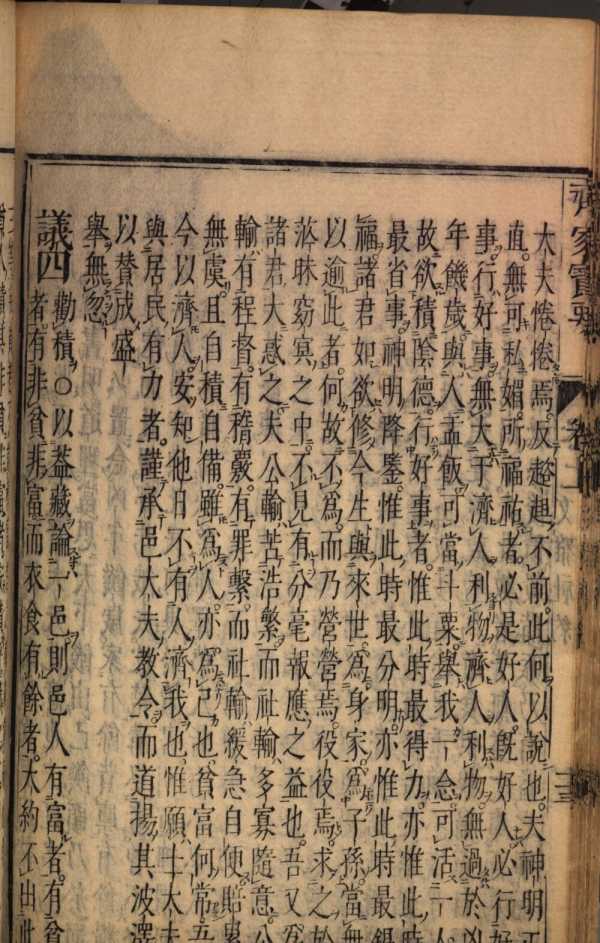 齊家寶要 卷二
大夫惓惓焉反趑趄不前此何以說也夫神明正
直無可私媚所福祐者必是好人旣好人必行好
事行好事無大于濟人利物濟人利物無過於凶
年饑歲與人盂飯可當斗粟舉我一念可活一人
故欲積陰德行好事者惟此時最得力亦惟此時
最省事神明降鑒惟此時最分明亦惟此時最
福諸君如欲修今生與來世爲身家爲子孫當無
以逾此者何故不爲而乃營營焉役役焉求之於
茫昧窈冥之中不見有分毫報應之益也吾又爲
諸君大惑之夫公輸苦浩繁而社輸多寡隨意公
輸有程督有稽覈有罪繫而社輸緩急自便貽累
無虞且自積自備雖爲人亦爲己也貧富何常五
今以濟人安知他日不有人濟我也惟願士大夫
與居民有力者謹承邑大夫教令而道揚其波澤
以贊成盛
舉無忽
議四 勸積○以蓋藏論一邑則邑人有富者有貧
者有非貧非富而衣食有餘者大約不出此